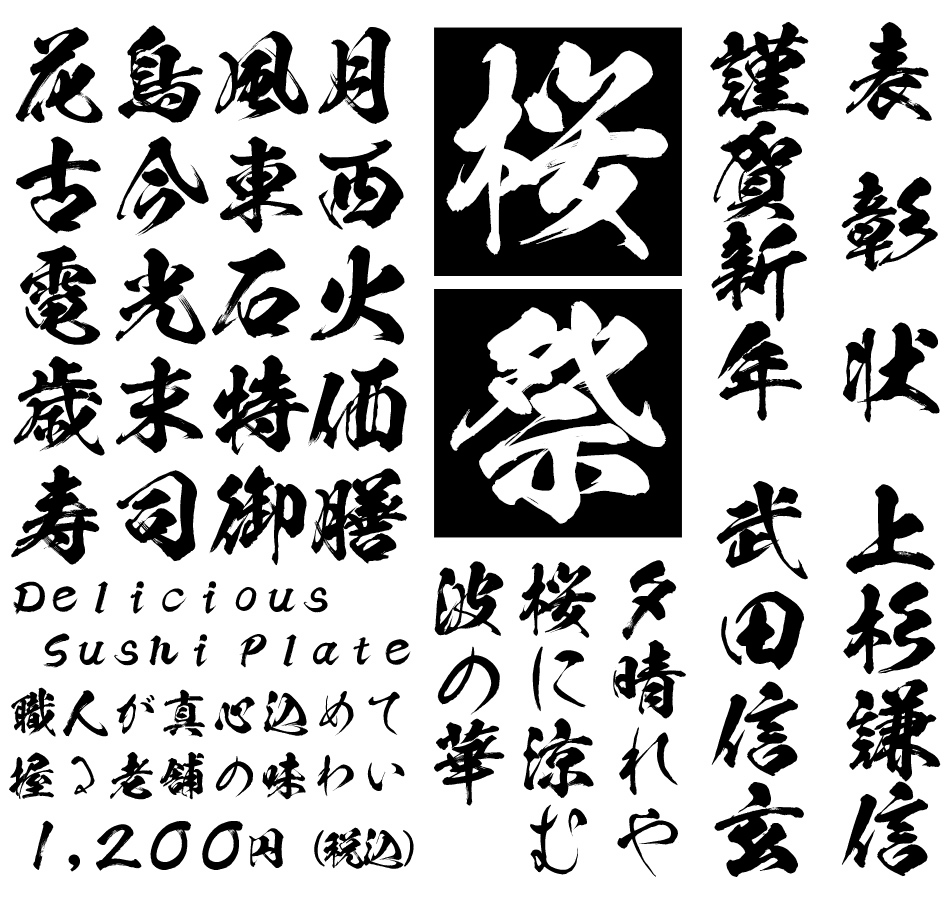 花鳥風月
古今東西
電光石火
歳末特価
寿司御膳
Delicious
Sushi Plate
職人が真心込めて
握る老舗の味わい
1,200円（税込）
桜
祭
夕晴れや
桜に涼む
波の華
表彰状
上杉謙信
謹賀新年
武田信玄